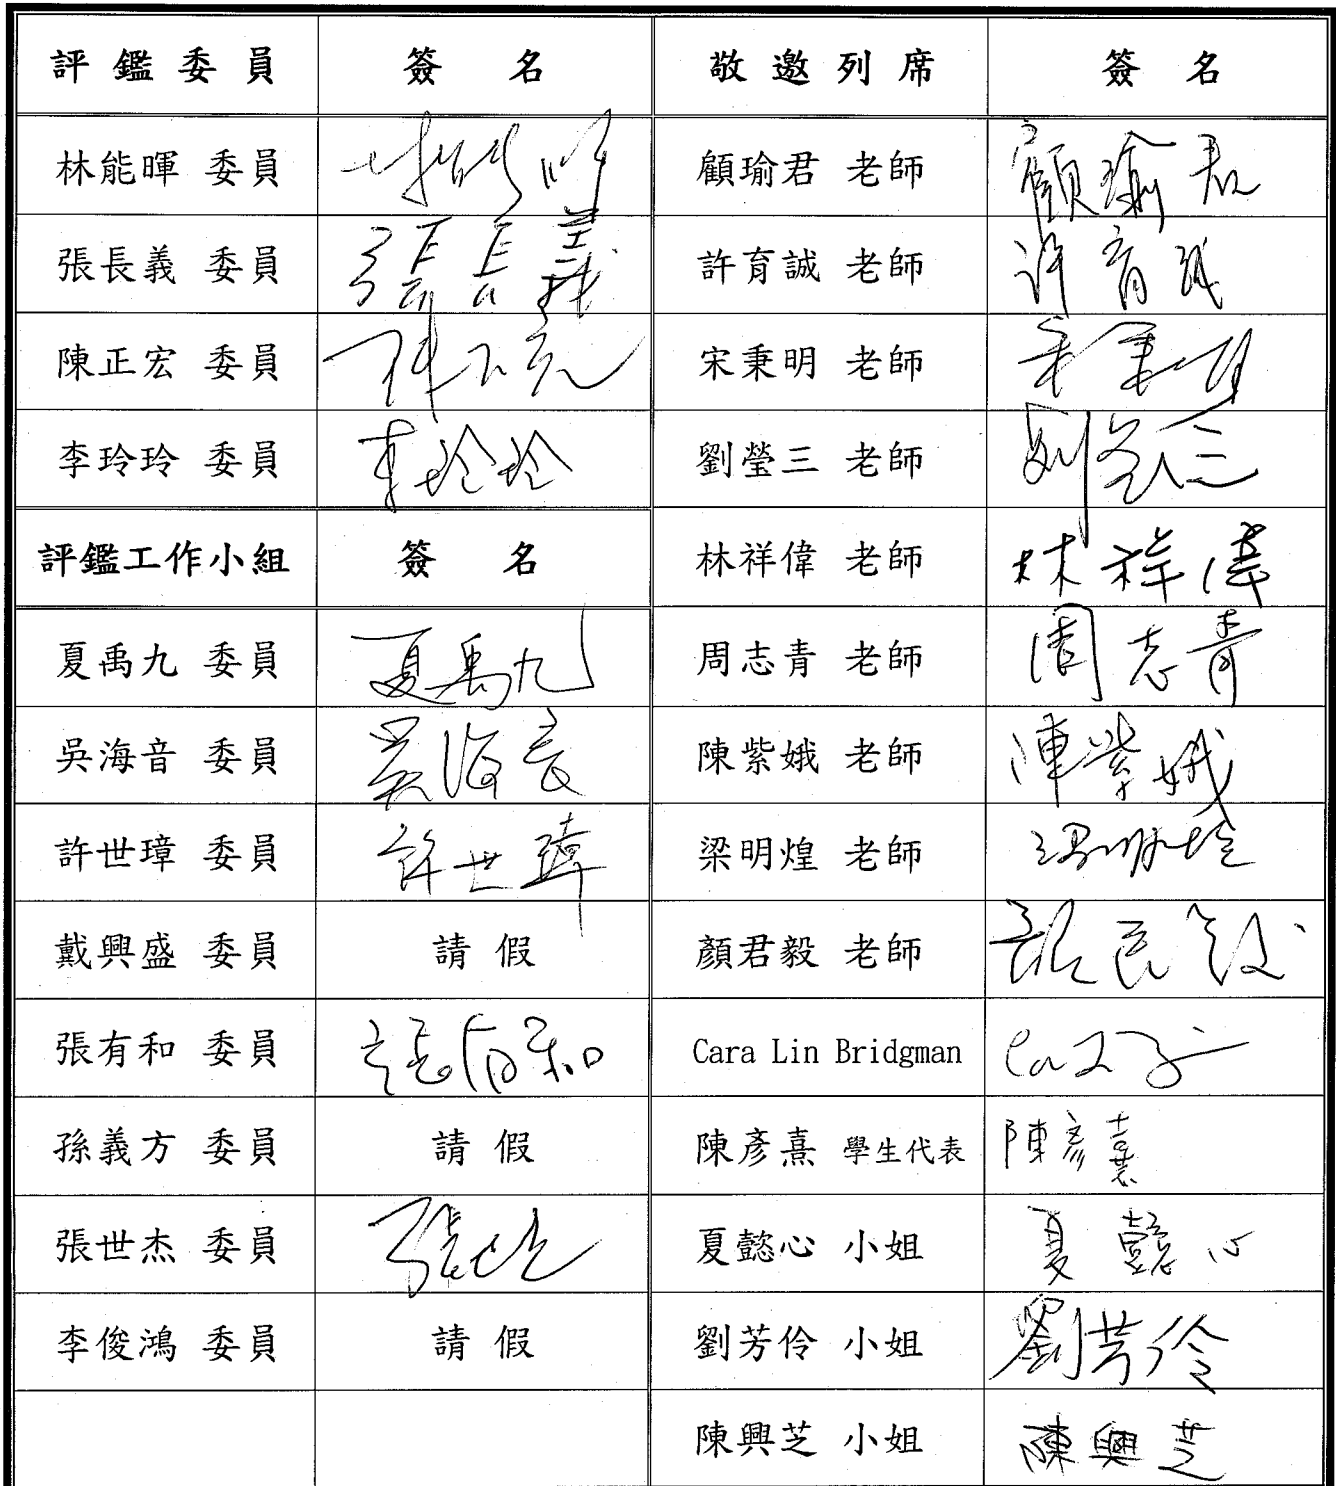 評鑑委員 簽名 敬邀列席 簽名
林能暉 委員 林能暉 顧瑜君 老師 顧瑜君
張長義 委員 張長義 許育誠 老師 許育誠
陳正宏 委員 宋秉明 老師 宋秉明
李玲玲 委員 李玲玲 劉瑩三 老師 劉瑩三
評鑑工作小組 簽名 林祥偉 老師 林祥偉
夏禹九 委員 夏禹九 周志青 老師 周志青
吳海音 委員 吳海音 陳紫娥 老師 陳紫娥
許世璋 委員 許世璋 梁明煌 老師 梁明煌
戴興盛 委員 請假 顏君毅 老師
張有和 委員 張有和 Cara Lin Bridgman
孫義方 委員 請假 陳彥熹 學生代表 陳彥熹
張世杰 委員 夏懿心 小姐 夏懿心
李俊鴻 委員 請假 劉芳伶 小姐 劉芳伶
陳興芝 小姐 陳興芝